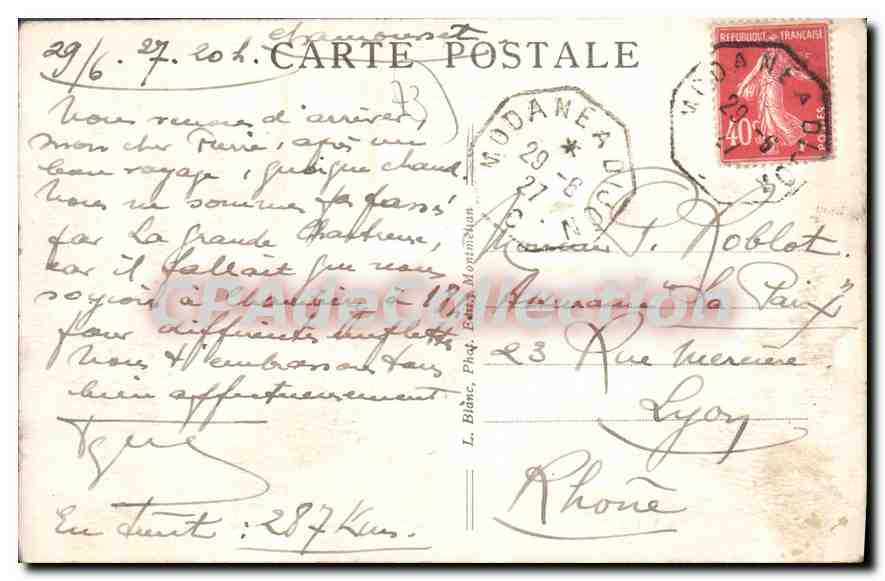 29/6. 27. 20h. Chamousset
CARTE POSTALE
73
Nous venons d'arriver,
mon cher Pierre, après un
beau voyage, quoique chaud.
Nous ne sommes pas passés
par La Grande Chartreuse,
car il fallait que nous
soyions à à 18h
pour différentes
Nous t'embrassons tous
bien affectueusement
En tout : 287 Kms.
L. Blanc, Phot. Edit., Montmélian
MODANE A DIJON
29 -6
27
REPUBLIQUE FRANÇAISE
40c
POSTES
MODANE A DIJON
29 -6
Monsieur P. Roblot
Assurance "La Paix"
23 Rue Mercière
Lyon
Rhône
CPADeCollection